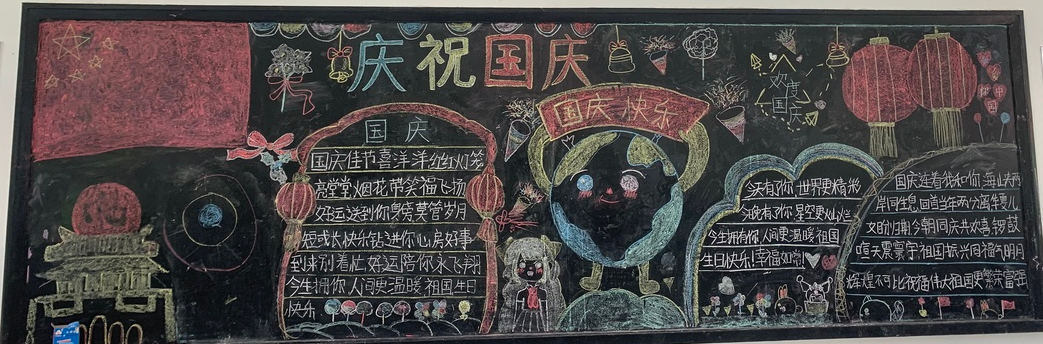 庆祝国庆
欢度
国庆
国庆快乐
国庆
国庆佳节喜洋洋红红灯笼
亮堂堂烟花带笑福飞扬
好运送到你身旁莫管岁月
短或长快乐钻进你心房好事
到来别着忙好运陪你永飞翔
今生拥你人间更温暖祖国生日
快乐
今天有了你,世界更精彩
今晚有了你,星空更灿烂
今生拥有你人间更温暖祖国
生日快乐!幸福如常!
国庆连着我和你海山大两
岸同生息回首当年两分离牵儿
文盼归期今朝同庆共欢喜锣鼓
喧天震寰宇祖国振兴同福气明月
辉煌不可比祝福伟大祖国更繁荣富强